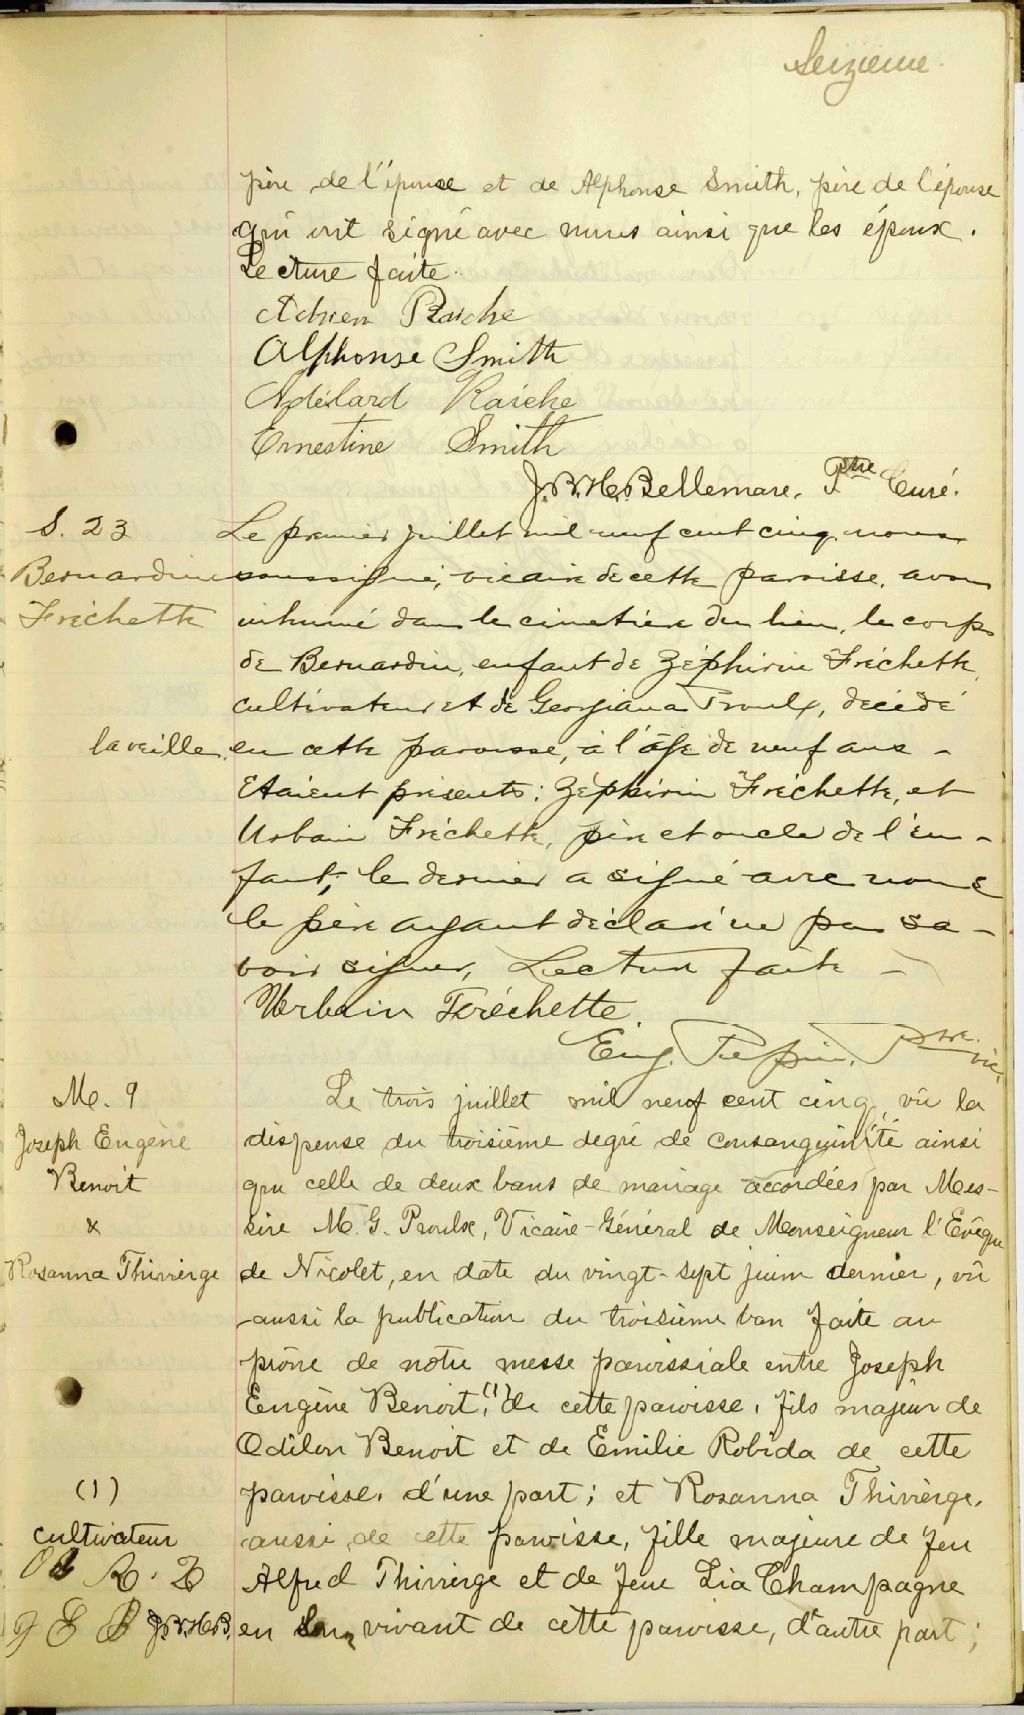 Seizième
père de l'épouse et de Alphonse Smith, père de l'épouse
qui ont signé avec nous ainsi que les époux.
Lecture faite.
Adrien Raiche
Alphonse Smith
Adélard Raiche
Ernestine Smith
J.B.H.C. Bellemare, Ptre Curé.
S. 23
Bernardin
Fréchette
Le premier juillet mil neuf cent cinq nous
soussigné, vicaire de cette paroisse, avons
inhumé dans le cimetière du lieu, le corps
de Bernardin, enfant de Zéphirin Fréchette,
cultivateur et de Georgiana Proulx, décédé
la veille, en cette paroisse, à l'âge de neuf ans -
Etaient présents: Zéphirin Fréchette, et
Urbain Fréchette, père et oncle de l'en-
fant; le dernier a signé avec nous
le père ayant déclaré ne pas sa-
voir signer, Lecture faite -
Urbain Fréchette
Eug. Pépin, Ptre. vic.
M. 9
Joseph Eugène
Benoit
x
Rosanna Thivierge
Le trois juillet mil neuf cent cinq, vû la
dispense du troisième degré de consanguinité ainsi
que celle de deux bans de mariage accordées par Mes-
sire M. G. Proulx, Vicaire-Général de Monseigneur l'Evêque
de Nicolet, en date du vingt-sept juin dernier, vû
aussi la publication du troisième ban faite au
prône de notre messe paroissiale entre Joseph
Eugène Benoit,(1) de cette paroisse, fils majeur de
Odilon Benoit et de Emilie Robida de cette
paroisse, d'une part; et Rosanna Thivierge,
aussi de cette paroisse, fille majeure de feu
Alfred Thivierge et de feue Lia Champagne
en vivant de cette paroisse, d'autre part;
(1)
cultivateur
J E B J.B.H.C.B.